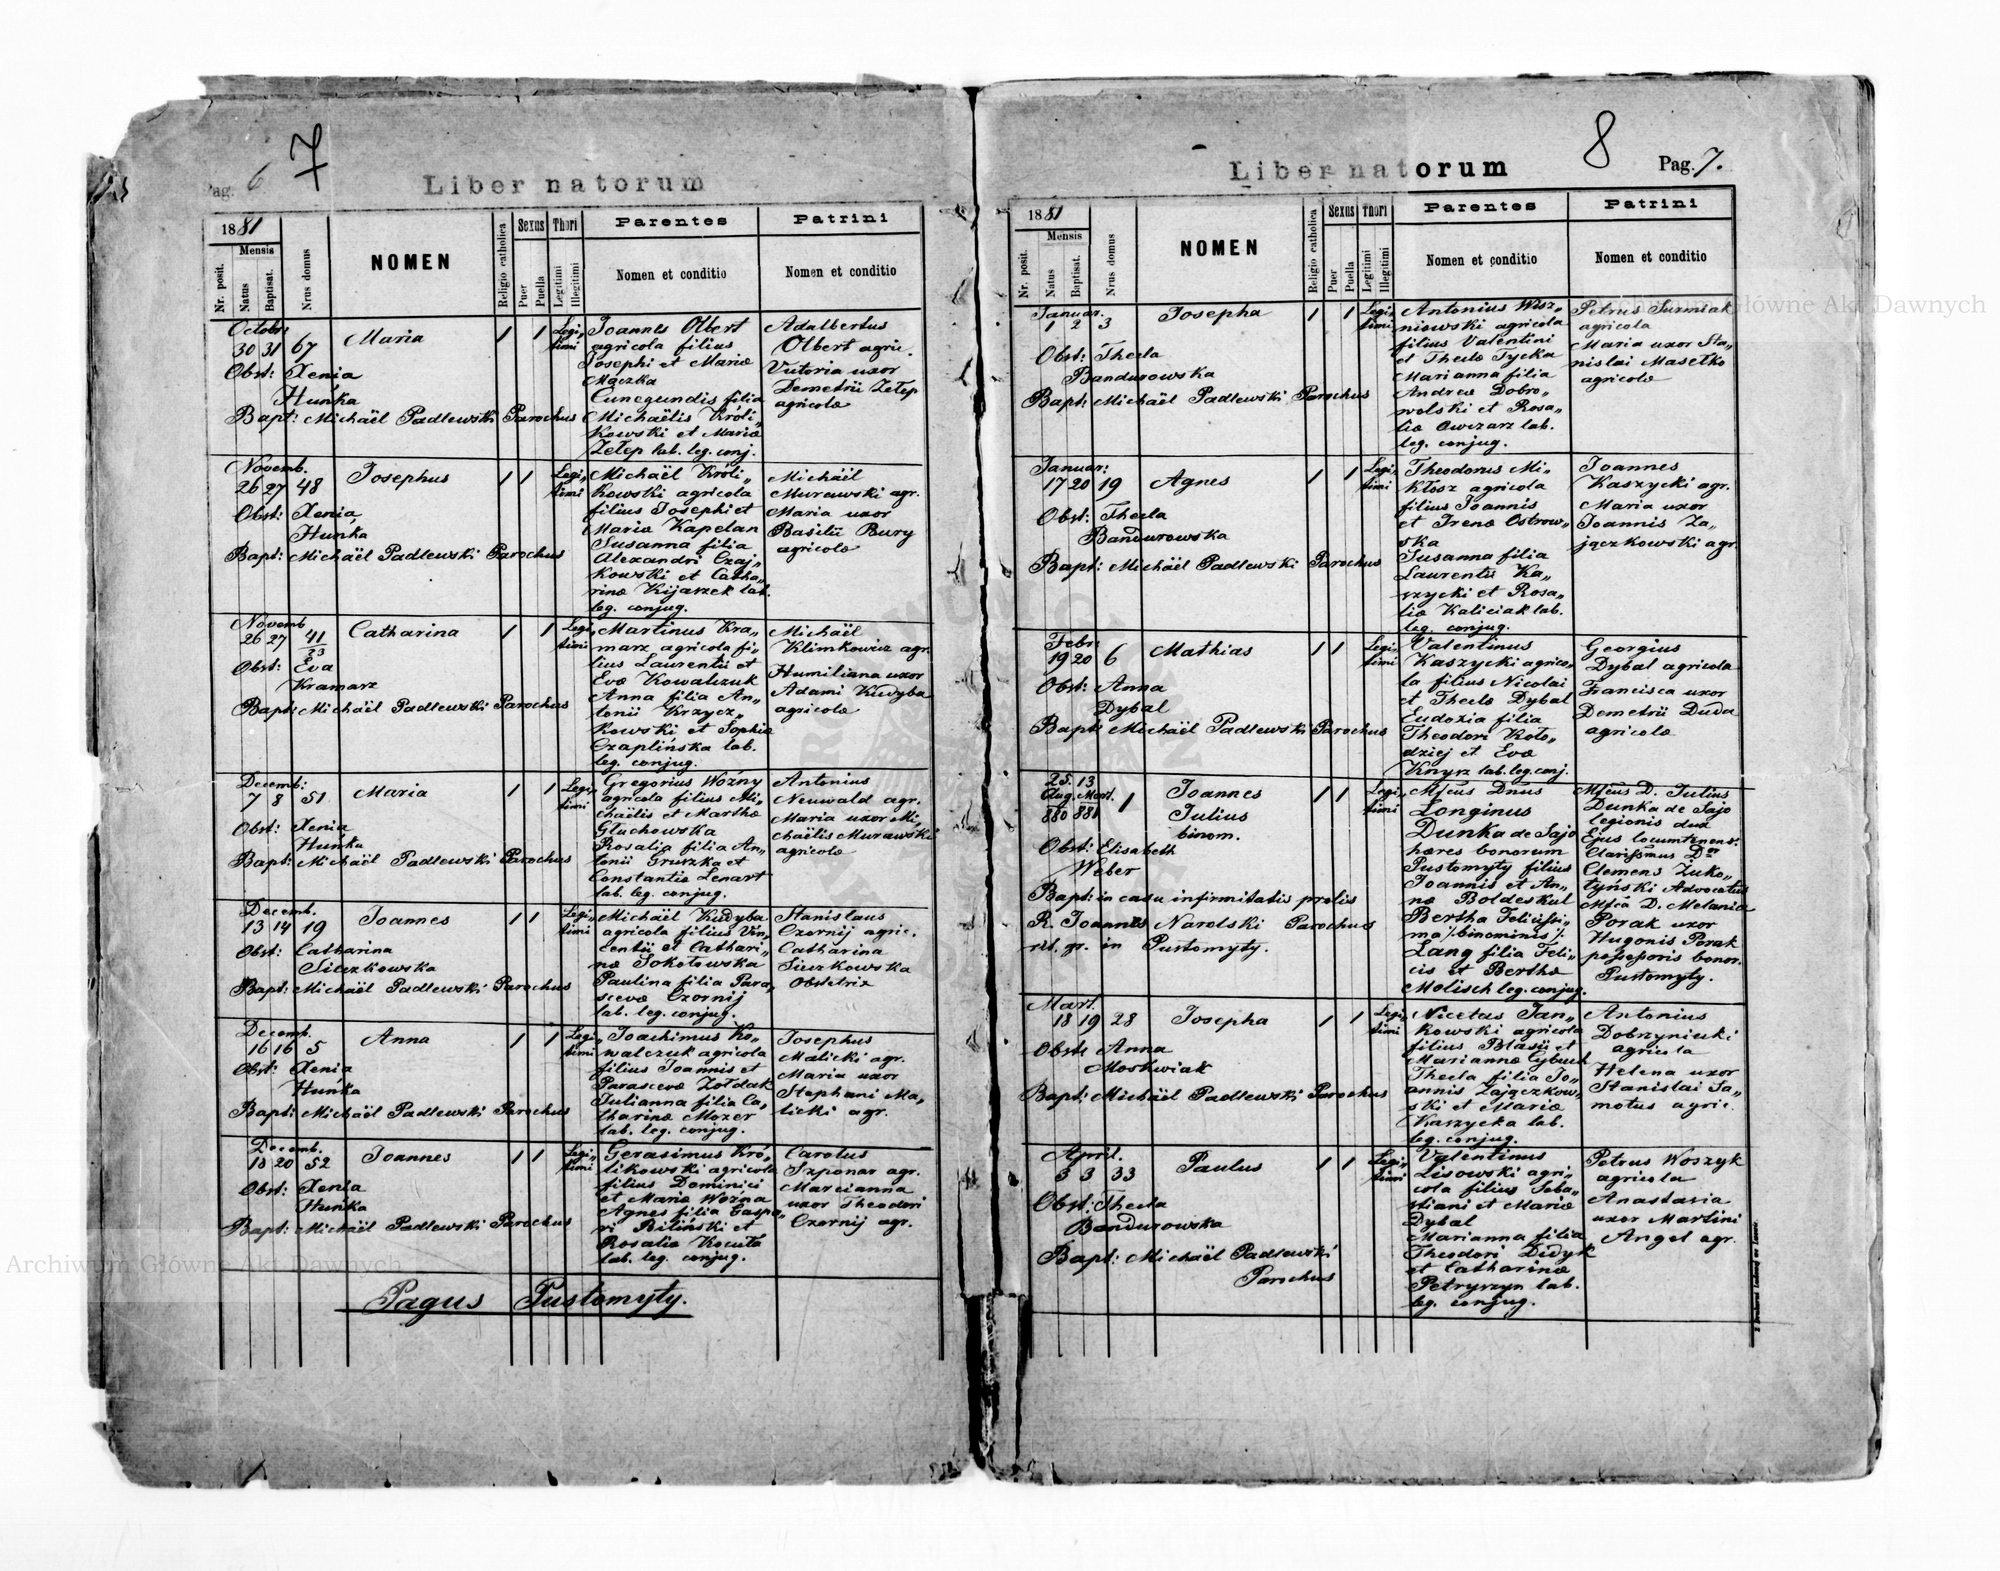 Pag. 6
7
Liber natorum
1881
Mensis
Nr. posit.
Natus
Baptisat.
Nrus domus
NOMEN
Religio catholica
Sexus
Puer
Puella
Thori
Legitimi
Illegitimi
Parentes
Nomen et conditio
Patrini
Nomen et conditio
Octobr.
30 31 67
Maria
1 1
Legi„
timi
Obst: Xenia
Huńka
Bapt: Michaël Padlewski Parochus
Joannes Olbert
agricola filius
Josephi et Mariæ
Mączka
Cunegundis filia
Michaëlis Króli„
kowski et Mariæ
Zełep lab. leg. conj.
Adalbertus
Olbert agric.
Victoria uxor
Demetrii Zełep
agricolæ
Novemb.
26 27 48
Josephus
1 1
Legi„
timi
Obst: Xenia
Huńka
Bapt: Michaël Padlewski Parochus
Michaël Króli„
kowski agricola
filius Josephi et
Mariæ Kapelan
Susanna filia
Alexandri Czaj„
kowski et Catha„
rinæ Kijaszek lab.
leg. conjug.
Michaël
Murawski agr.
Maria uxor
Basilii Bury
agricolæ
Novemb
26 27 41
33
Catharina
1 1
Legi„
timi
Obst: Eva
Kramarz
Bapt: Michaël Padlewski Parochus
Martinus Kra„
marz agricola fi„
lius Laurentii et
Evæ Kowalczuk
Anna filia An„
tonii Krzycz„
kowski et Sophiæ
Czaplińska lab.
leg. conjug.
Michaël
Klimkowicz agr.
Humiliana uxor
Adami Kudyba
agricolæ
Decemb:
7 8 51
Maria
1 1
Legi„
timi
Obst: Xenia
Huńka
Bapt: Michaël Padlewski Parochus
Gregorius Woźny
agricola filius Mi„
chaëlis et Marthæ
Głuchowska
Rosalia filia An„
tonii Gruszka et
Constantiæ Lenart
lab. leg. conjug.
Antonius
Neuwald agr.
Maria uxor Mi„
chaëlis Murawski
agricolæ
Decemb.
13 14 19
Joannes
1 1
Legi„
timi
Obst: Catharina
Sieczkowska
Bapt: Michaël Padlewski Parochus
Michaël Kudyba
agricola filius Vin„
centii et Cathari„
næ Sokołowska
Paulina filia Para„
scevæ Czornij
lab. leg. conjug.
Stanislaus
Czornij agric.
Catharina
Sieczkowska
Obstetrix
Decemb.
16 16 5
Anna
1 1
Legi„
timi
Obst: Xenia
Huńka
Bapt: Michaël Padlewski Parochus
Joachimus Ko„
walczuk agricola
filius Joannis et
Parascevæ Żołdak
Julianna filia Ca„
tharinæ Mozer
lab. leg. conjug.
Josephus
Malicki agr.
Maria uxor
Stephani Ma„
licki agr.
Decemb.
18 20 52
Joannes
1 1
Legi„
timi
Obst: Xenia
Huńka
Bapt: Michaël Padlewski Parochus
Gerasimus Kró„
likowski agricola
filius Dominici
et Mariæ Wozna
Agnes filia Caspa„
ri Biliński et
Rosaliæ Kocuła
lab. leg. conjug.
Carolus
Szponar agr.
Marcianna
uxor Theodori
Czornij agr.
Pagus Pustomyty.
8
Pag. 7.
Liber natorum
1881
Mensis
Nr. posit.
Natus
Baptisat.
Nrus domus
NOMEN
Religio catholica
Sexus
Puer
Puella
Thori
Legitimi
Illegitimi
Parentes
Nomen et conditio
Patrini
Nomen et conditio
Januar.
1 2 3
Josepha
1 1
Legi„
timi
Obst: Thecla
Bandurowska
Bapt: Michaël Padlewski Parochus
Antonius Wisz„
niowski agricola
filius Valentini
et Theclæ Tycka
Marianna filia
Andreæ Dobro„
wolski et Rosa„
liæ Owczarz lab.
leg. conjug.
Petrus Surmiak
agricola
Maria uxor Sta„
nislai Masełko
agricolæ
Januar:
17 20 19
Agnes
1 1
Legi„
timi
Obst: Thecla
Bandurowska
Bapt: Michaël Padlewski Parochus
Theodorus Mi„
kłosz agricola
filius Joannis
et Irenæ Ostrow„
ska
Susanna filia
Laurentii Ka„
szycki et Rosa„
liæ Kaliciak lab.
leg. conjug.
Joannes
Kaszycki agr.
Maria uxor
Joannis Za„
jączkowski agr.
Febr.
19 20 6
Mathias
1 1
Legi„
timi
Obst: Anna
Dybal
Bapt: Michaël Padlewski Parochus
Valentinus
Kaszycki agrico„
la filius Nicolai
et Theclæ Dybal
Eudoxia filia
Theodori Koło„
dziej et Evæ
Knysz lab. leg. conj.
Georgius
Dybal agricola
Francisca uxor
Demetrii Duda
agricolæ
25 13
Aug. Mart.
880 881
1
Joannes
Julius
binom.
1 1
Legi„
timi
Obst: Elisabeth
Weber
Bapt: in casu infirmitatis prolis
R. Joannes Narolski Parochus
rit. gr. in Pustomyty.
Mfcus Dnus
Longinus
Dunka de Sajo
hæres bonorum
Pustomyty filius
Joannis et An„
næ Boldeskul
Bertha Felicissi„
ma /:binominis/:
Lang filia Feli„
cis et Berthæ
Molisch leg. conjug.
Mfcus D. Julius
Dunka de Sajo
legionis dux
Ejus locumtenens:
Clarissmus Dnr
Clemens Żuko„
tyński Advocatus
Mfca D. Melania
Porak uxor
Hugonis Porak
possessoris bonor.
Pustomyty.
Mart.
18 19 28
Josepha
1 1
Legi„
timi
Obst: Anna
Moskwiak
Bapt: Michaël Padlewski Parochus
Nicetas Jan„
kowski agricola
filius Blasii et
Mariannæ Cybuch
Thecla filia Jo„
annis Zajączkow„
ski et Mariæ
Kaszycka lab.
leg. conjug.
Antonius
Dobrzyniecki
agricola
Helena uxor
Stanislai Ja„
motus agric.
April.
3 3 33
Paulus
1 1
Legi„
timi
Obst: Thecla
Bandurowska
Bapt: Michaël Padlewski
Parochus
Valentinus
Lisowski agri„
cola filius Seba„
stiani et Mariæ
Dybal
Marianna filia
Theodori Didyk
et Catharinæ
Petryszyn lab.
leg. conjug.
Petrus Woszyk
agricola
Anastasia
uxor Martini
Angel agr.
Archiwum Główne Akt Dawnych
Archiwum Główne Akt Dawnych